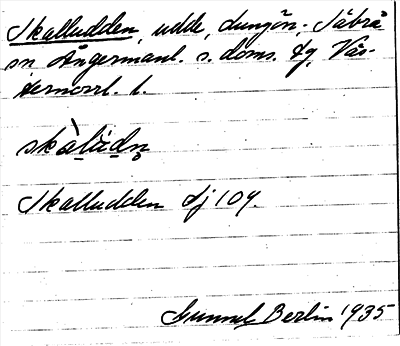 Skalludden, udde, Lungön, Säbrå
sn Ångermanl. s. doms. fg, Väs-
ternorrl. l.
skàlùdn̥
Skalludden dj 109.
Gunnel Berlin 1935